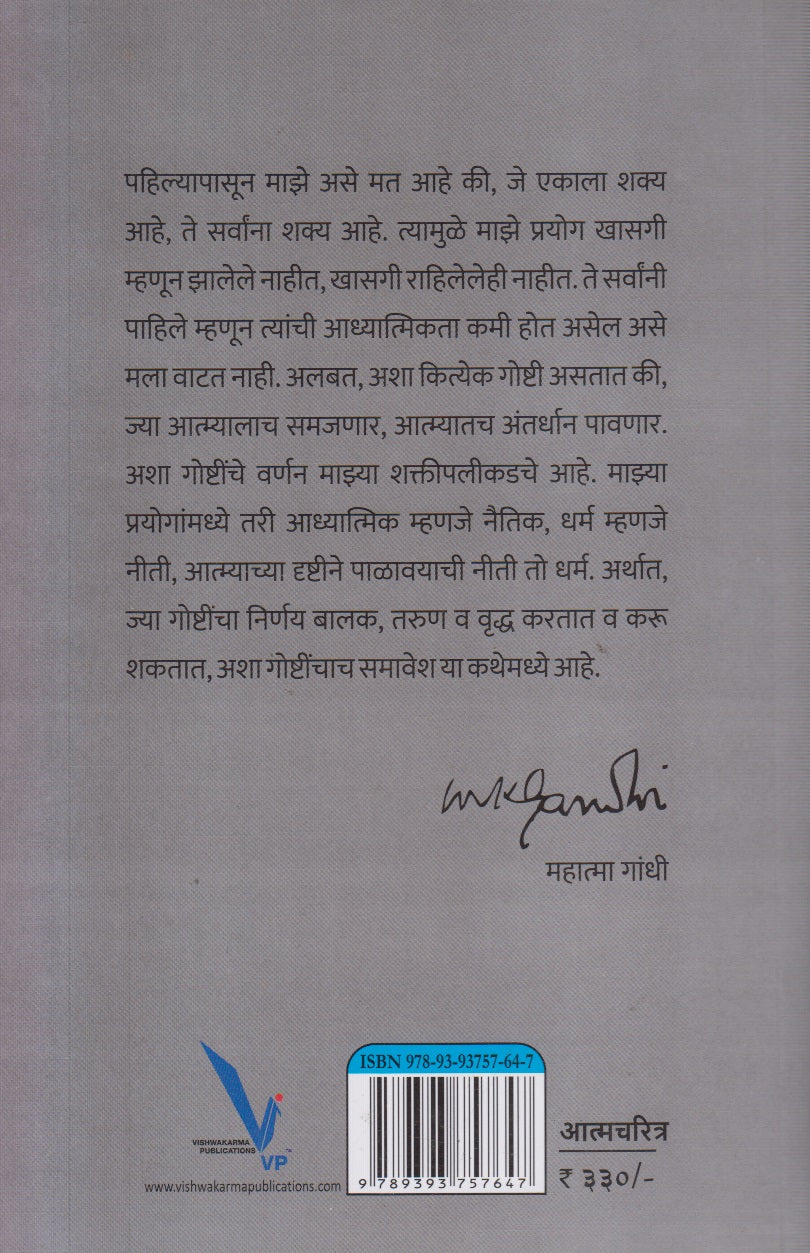 पहिल्यापासून माझे असे मत आहे की, जे एकाला शक्य
आहे, ते सर्वांना शक्य आहे. त्यामुळे माझे प्रयोग खासगी
म्हणून झालेले नाहीत, खासगी राहिलेलेही नाहीत. ते सर्वांनी
पाहिले म्हणून त्यांची आध्यात्मिकता कमी होत असेल असे
मला वाटत नाही. अलबत, अशा कित्येक गोष्टी असतात की,
ज्या आत्म्यालाच समजणार, आत्म्यातच अंतर्धान पावणार.
अशा गोष्टींचे वर्णन माझ्या शक्तीपलीकडचे आहे. माझ्या
प्रयोगांमध्ये तरी आध्यात्मिक म्हणजे नैतिक, धर्म म्हणजे
नीती, आत्म्याच्या दृष्टीने पाळावयाची नीती तो धर्म. अर्थात,
ज्या गोष्टींचा निर्णय बालक, तरुण व वृद्ध करतात व करू
शकतात, अशा गोष्टींचाच समावेश या कथेमध्ये आहे.
mkgandhi
महात्मा गांधी
VISHWAKARMA
PUBLICATIONS
VP™
www.vishwakarmapublications.com
ISBN 978-93-93757-64-7
9 789393 757647
आत्मचरित्र
₹ ३३०/-